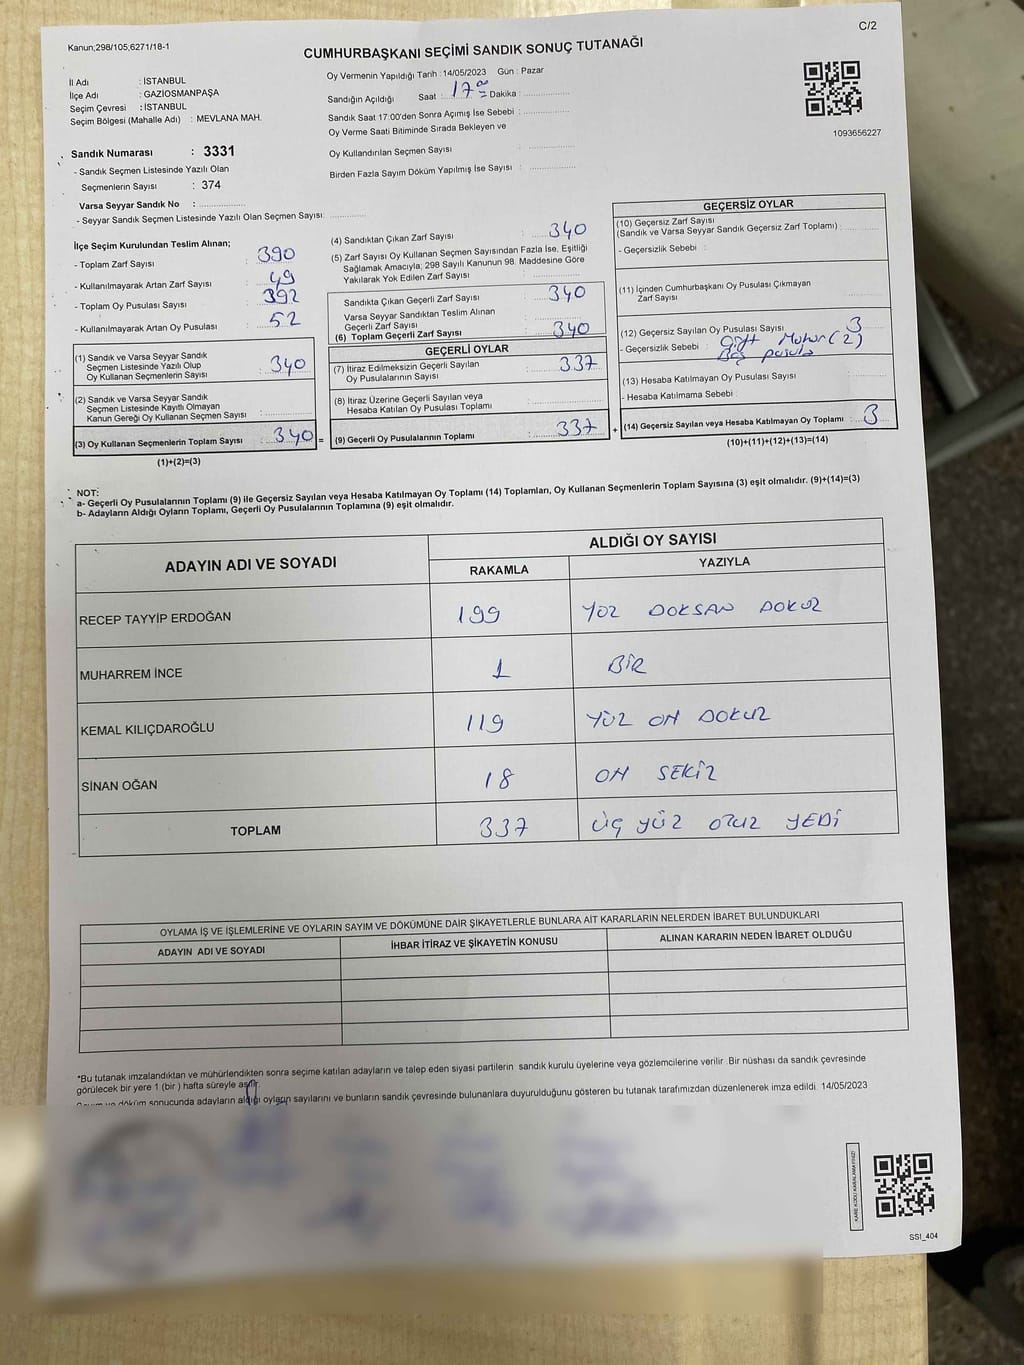 Kanun;298/105;6271/18-1
C/2
CUMHURBAŞKANI SEÇİMİ SANDIK SONUÇ TUTANAĞI
İl Adı : İSTANBUL
İlçe Adı : GAZİOSMANPAŞA
Seçim Çevresi : İSTANBUL
Seçim Bölgesi (Mahalle Adı) : MEVLANA MAH.
Oy Vermenin Yapıldığı Tarih : 14/05/2023 Gün : Pazar
Sandığın Açıldığı Saat : 17 00 Dakika :
Sandık Saat 17:00'den Sonra Açımış İse Sebebi :
Oy Verme Saati Bitiminde Sırada Bekleyen ve
Oy Kullandırılan Seçmen Sayısı :
Birden Fazla Sayım Döküm Yapılmış İse Sayısı :
1093656227
Sandık Numarası : 3331
- Sandık Seçmen Listesinde Yazılı Olan
Seçmenlerin Sayısı : 374
Varsa Seyyar Sandık No :
- Seyyar Sandık Seçmen Listesinde Yazılı Olan Seçmen Sayısı:
İlçe Seçim Kurulundan Teslim Alınan;
- Toplam Zarf Sayısı : 390
- Kullanılmayarak Artan Zarf Sayısı : 49
- Toplam Oy Pusulası Sayısı : 392
- Kullanılmayarak Artan Oy Pusulası : 52
(1) Sandık ve Varsa Seyyar Sandık
Seçmen Listesinde Yazılı Olup
Oy Kullanan Seçmenlerin Sayısı : 340
(2) Sandık ve Varsa Seyyar Sandık
Seçmen Listesinde Kayıtlı Olmayan
Kanun Gereği Oy Kullanan Seçmen Sayısı :
(3) Oy Kullanan Seçmenlerin Toplam Sayısı : 340 =
(1)+(2)=(3)
(4) Sandıktan Çıkan Zarf Sayısı : 340
(5) Zarf Sayısı Oy Kullanan Seçmen Sayısından Fazla İse, Eşitliği
Sağlamak Amacıyla; 298 Sayılı Kanunun 98. Maddesine Göre
Yakılarak Yok Edilen Zarf Sayısı :
Sandıkta Çıkan Geçerli Zarf Sayısı : 340
Varsa Seyyar Sandıktan Teslim Alınan
Geçerli Zarf Sayısı :
(6) Toplam Geçerli Zarf Sayısı : 340
GEÇERLİ OYLAR
(7) İtiraz Edilmeksizin Geçerli Sayılan
Oy Pusulalarının Sayısı : 337
(8) İtiraz Üzerine Geçerli Sayılan veya
Hesaba Katılan Oy Pusulası Toplamı :
(9) Geçerli Oy Pusulalarının Toplamı : 337 +
GEÇERSİZ OYLAR
(10) Geçersiz Zarf Sayısı
(Sandık ve Varsa Seyyar Sandık Geçersiz Zarf Toplamı) :
- Geçersizlik Sebebi :
(11) İçinden Cumhurbaşkanı Oy Pusulası Çıkmayan
Zarf Sayısı :
(12) Geçersiz Sayılan Oy Pusulası Sayısı : 3
- Geçersizlik Sebebi : Çift Mühür (2)
Boş pusula
(13) Hesaba Katılmayan Oy Pusulası Sayısı :
- Hesaba Katılmama Sebebi :
(14) Geçersiz Sayılan veya Hesaba Katılmayan Oy Toplamı : 3
(10)+(11)+(12)+(13)=(14)
NOT:
a- Geçerli Oy Pusulalarının Toplamı (9) ile Geçersiz Sayılan veya Hesaba Katılmayan Oy Toplamı (14) Toplamları, Oy Kullanan Seçmenlerin Toplam Sayısına (3) eşit olmalıdır. (9)+(14)=(3)
b- Adayların Aldığı Oyların Toplamı, Geçerli Oy Pusulalarının Toplamına (9) eşit olmalıdır.
ADAYIN ADI VE SOYADI
ALDIĞI OY SAYISI
RAKAMLA YAZIYLA
RECEP TAYYİP ERDOĞAN 199 YÜZ DOKSAN DOKUZ
MUHARREM İNCE 1 BİR
KEMAL KILIÇDAROĞLU 119 YÜZ ON DOKUZ
SİNAN OĞAN 18 ON SEKİZ
TOPLAM 337 ÜÇ YÜZ OTUZ YEDİ
OYLAMA İŞ VE İŞLEMLERİNE VE OYLARIN SAYIM VE DÖKÜMÜNE DAİR ŞİKAYETLERLE BUNLARA AİT KARARLARIN NELERDEN İBARET BULUNDUKLARI
ADAYIN ADI VE SOYADI İHBAR İTİRAZ VE ŞİKAYETİN KONUSU ALINAN KARARIN NEDEN İBARET OLDUĞU
*Bu tutanak imzalandıktan ve mühürlendikten sonra seçime katılan adayların ve talep eden siyasi partilerin sandık kurulu üyelerine veya gözlemcilerine verilir. Bir nüshası da sandık çevresinde
görülecek bir yere 1 (bir ) hafta süreyle asılır.
Sayım ve döküm sonucunda adayların aldığı oyların sayılarını ve bunların sandık çevresinde bulunanlara duyurulduğunu gösteren bu tutanak tarafımızdan düzenlenerek imza edildi. 14/05/2023
KARE KODU KARALAMAYINIZ!
SSI_404